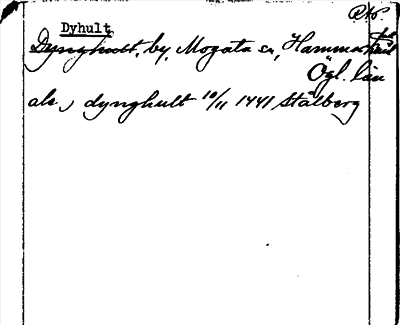 P.N.
Dyhult
Dynghult, by, Mogata sn, Hammarkinds
Ögl. län
ak, dynghult 10/11 1441 Stålberg